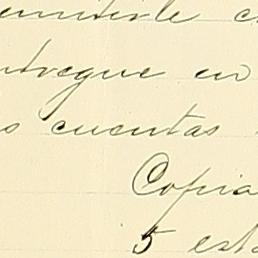 emitirle c
ntregue en
s cuentas
Copia
5 esta